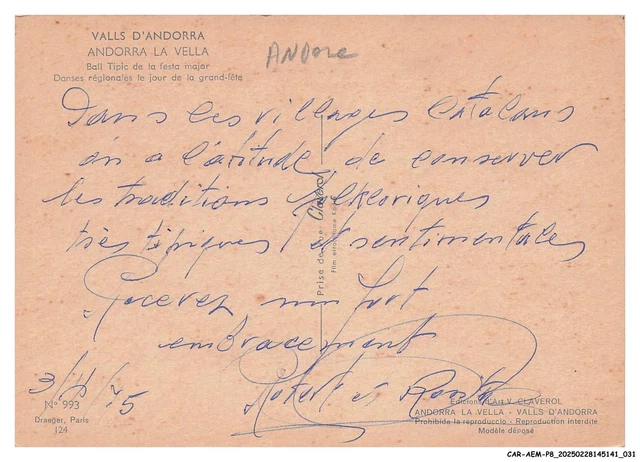 VALLS D'ANDORRA
ANDORRA LA VELLA
Ball Tipic de la festa major
Danses régionales le jour de la grand-fête
ANDore
Dans les villages Catalans
on a l'atitude de conserver
les traditions folkloriques
très tipiques et sentimentales
Recevez un fort
embracement
3/ /75
Robert et
Prise de vue Claverol
Nº 993
Draeger, Paris
124
Edicions d'Art V. CLAVEROL
ANDORRA LA VELLA - VALLS D'ANDORRA
Prohibida la reproduccio - Reproduction interdite
Modèle déposé
CAR-AEM-P8_20250228145141_031